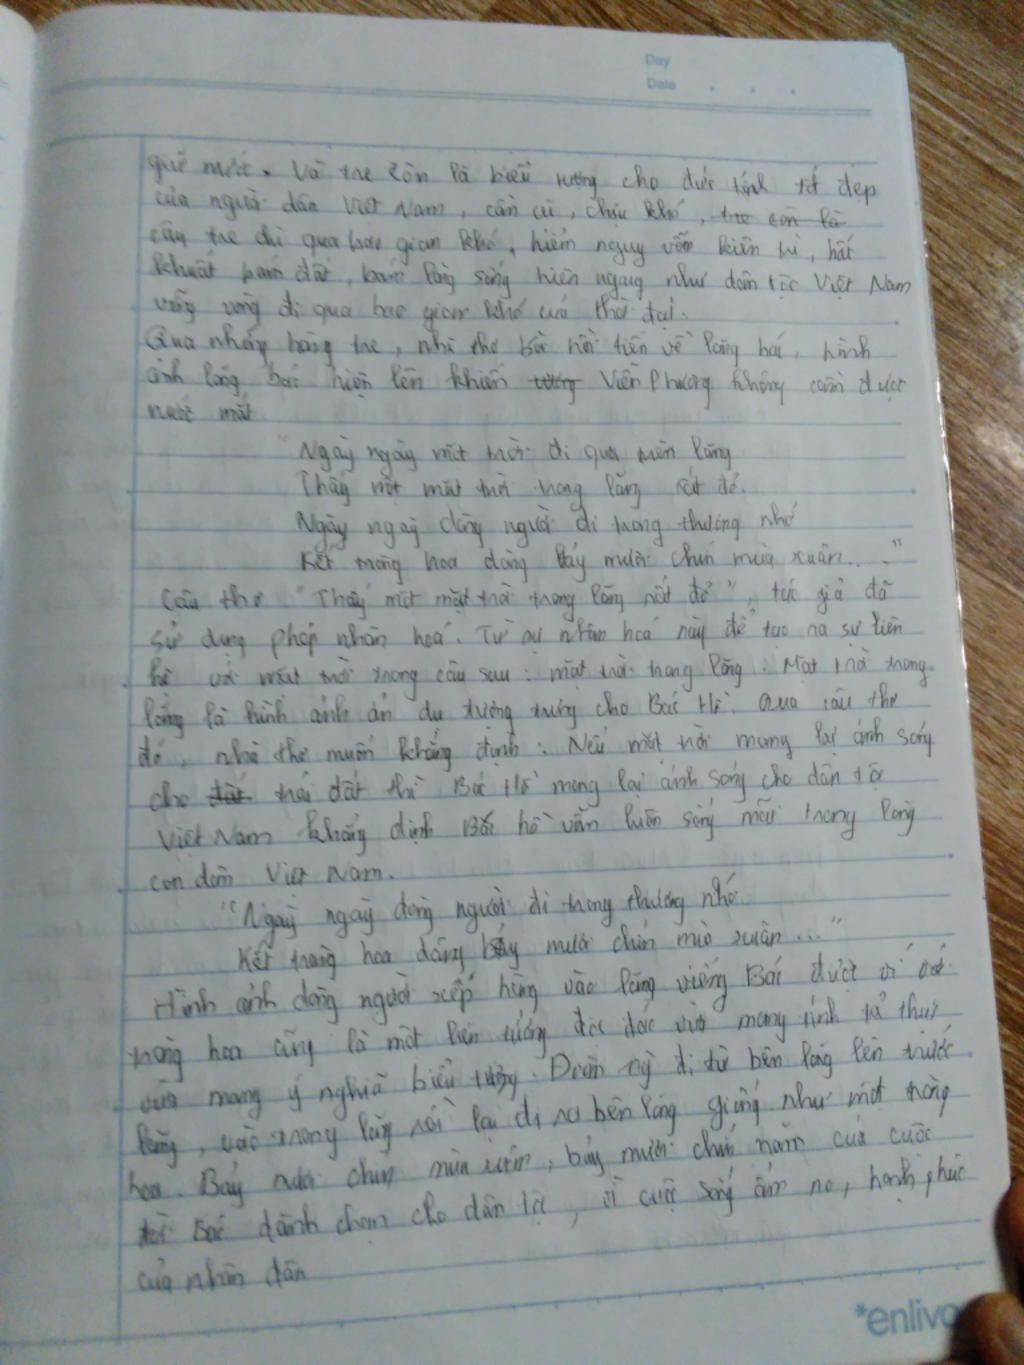 Day
Date
quê mới. Và tre còn là biểu tượng cho đức tính tốt đẹp
của người dân Việt Nam, cần cù, chịu khó, tre còn là
cây tre đi qua bao gian khó, hiểm nguy vẫn kiên trì, bất
khuất bám đất, bám làng sống hiên ngang như dân tộc Việt Nam
vững vàng đi qua bao gian khó của thời đại.
Qua những hàng tre, nhà thơ bồi hồi tiến về lăng bác, hình
ảnh lăng bác hiện lên khiến Viễn Phương không cầm được
nước mắt
"Ngày ngày mặt trời đi qua trên lăng
Thấy một mặt trời trong lăng rất đỏ.
Ngày ngày dòng người đi trong thương nhớ
Kết tràng hoa dâng bảy mươi chín mùa xuân...."
Câu thơ "Thấy một mặt trời trong lăng rất đỏ", tác giả đã
sử dụng phép nhân hoá. Từ sự nhân hoá này để tạo ra sự liên
hệ với mặt trời trong câu sau: mặt trời trong lăng. Mặt trời trong
lăng là hình ảnh ẩn dụ tượng trưng cho Bác Hồ. Qua câu thơ
đó, nhà thơ muốn khẳng định: Nếu mặt trời mang lại ánh sáng
cho đất trái đất thì Bác Hồ mang lại ánh sáng cho dân tộc
Việt Nam khẳng định Bác hồ vẫn luôn sống mãi trong lòng
con dân Việt Nam.
"Ngày ngày dòng người đi trong thương nhớ
Kết tràng hoa dâng bảy mươi chín mùa xuân..."
Hình ảnh dòng người xếp hàng vào lăng viếng Bác được ví với
tràng hoa cũng là một liên tưởng độc đáo vừa mang tính tả thực
vừa mang ý nghĩa biểu tượng. Đoàn ng đi từ bên lăng lên trước
lăng, vào trong lăng rồi lại đi ra bên lăng giống như một tràng
hoa. Bảy mươi chín mùa xuân, bảy mươi chín năm của cuộc
đời Bác dành chọn cho dân tộc, vì cuộc sống ấm no, hạnh phúc
của nhân dân
*enlivo